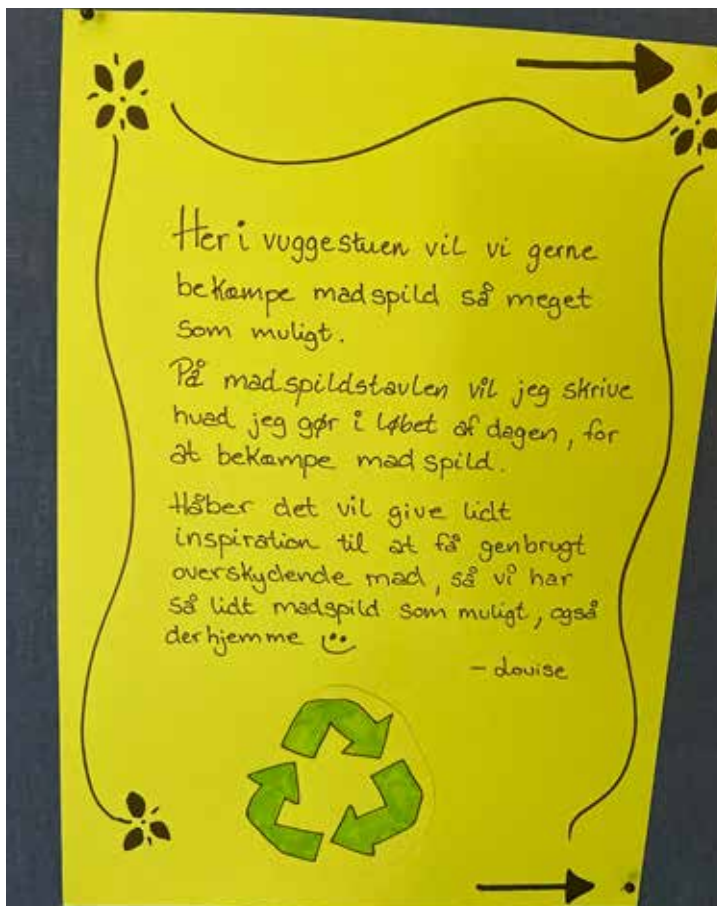 Her i vuggestuen vil vi gerne
bekæmpe madspild så meget
som muligt.
På madspildstavlen vil jeg skrive
hvad jeg gør i løbet af dagen, for
at bekæmpe madspild.
Håber det vil give lidt
inspiration til at få genbrugt
overskydende mad, så vi har
så lidt madspild som muligt, også
derhjemme
- Louise